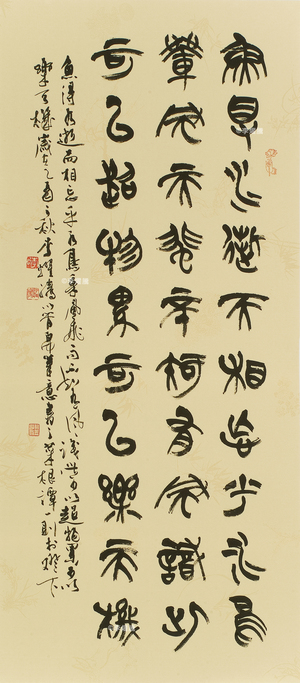 魚得水逝而相忘乎水鳥
乘風而飛不知有風識此
可以超物累可以樂天機
魚得水逝而相忘乎水鳥乘風飛而不知有風識此可以超物累可以
樂天機歲在乙酉之秋筆意書之菜根譚一則於燈下